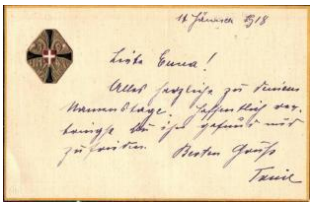 14 Jänner 1918
Liebe Emma!
Alles herzliche zu Deinem
Namenstage. Hoffentlich ver-
bringst Du ihn gesund und
zufrieden.
Besten Gruß